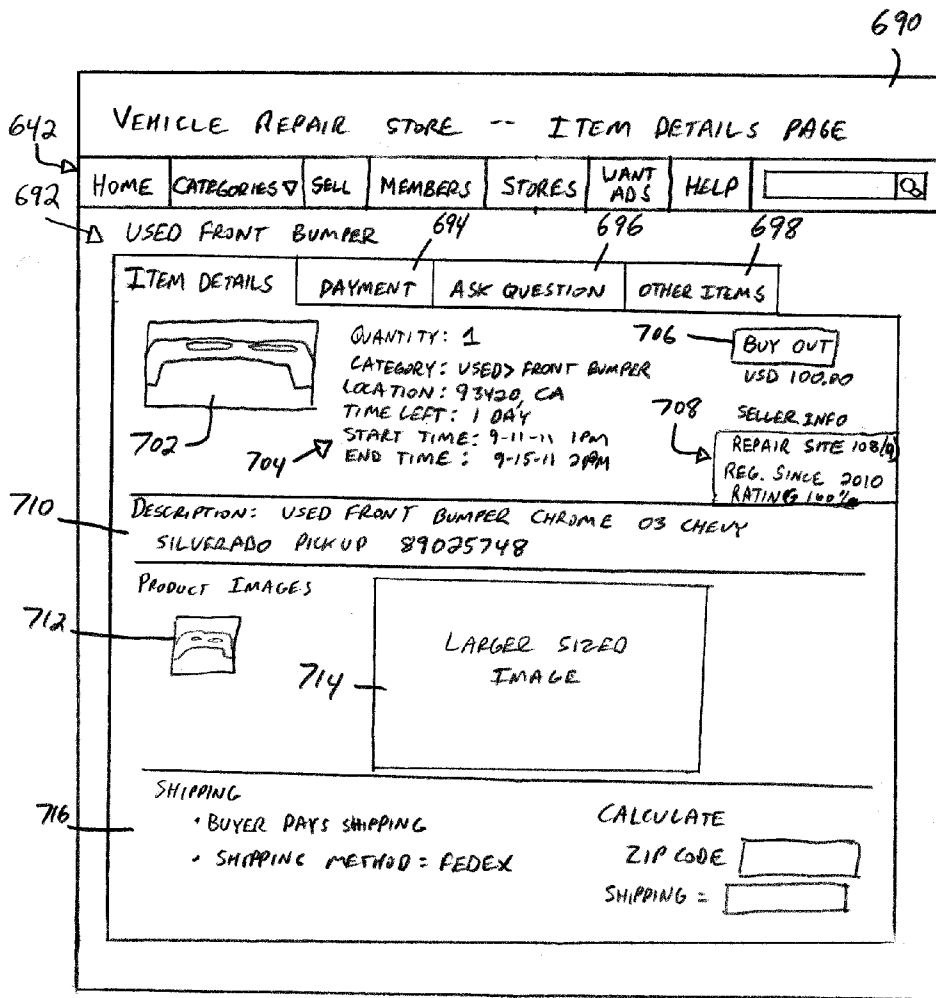 690
VEHICLE REPAIR STORE -- ITEM DETAILS PAGE
642
HOME CATEGORIES ▽ SELL MEMBERS STORES WANT ADS HELP
692
USED FRONT BUMPER
694 696 698
ITEM DETAILS PAYMENT ASK QUESTION OTHER ITEMS
QUANTITY: 1
CATEGORY: USED> FRONT BUMPER
LOCATION: 93420, CA
TIME LEFT: 1 DAY
START TIME: 9-11-11 1PM
END TIME: 9-15-11 2PM
702
704
706
BUY OUT
USD 100.00
708
SELLER INFO
REPAIR SITE 108(a)
REG. SINCE 2010
RATING 100%
710
DESCRIPTION: USED FRONT BUMPER CHROME 03 CHEVY
SILVERADO PICKUP 89025748
PRODUCT IMAGES
712
714
LARGER SIZED
IMAGE
716
SHIPPING
• BUYER PAYS SHIPPING
• SHIPPING METHOD = FEDEX
CALCULATE
ZIP CODE
SHIPPING =